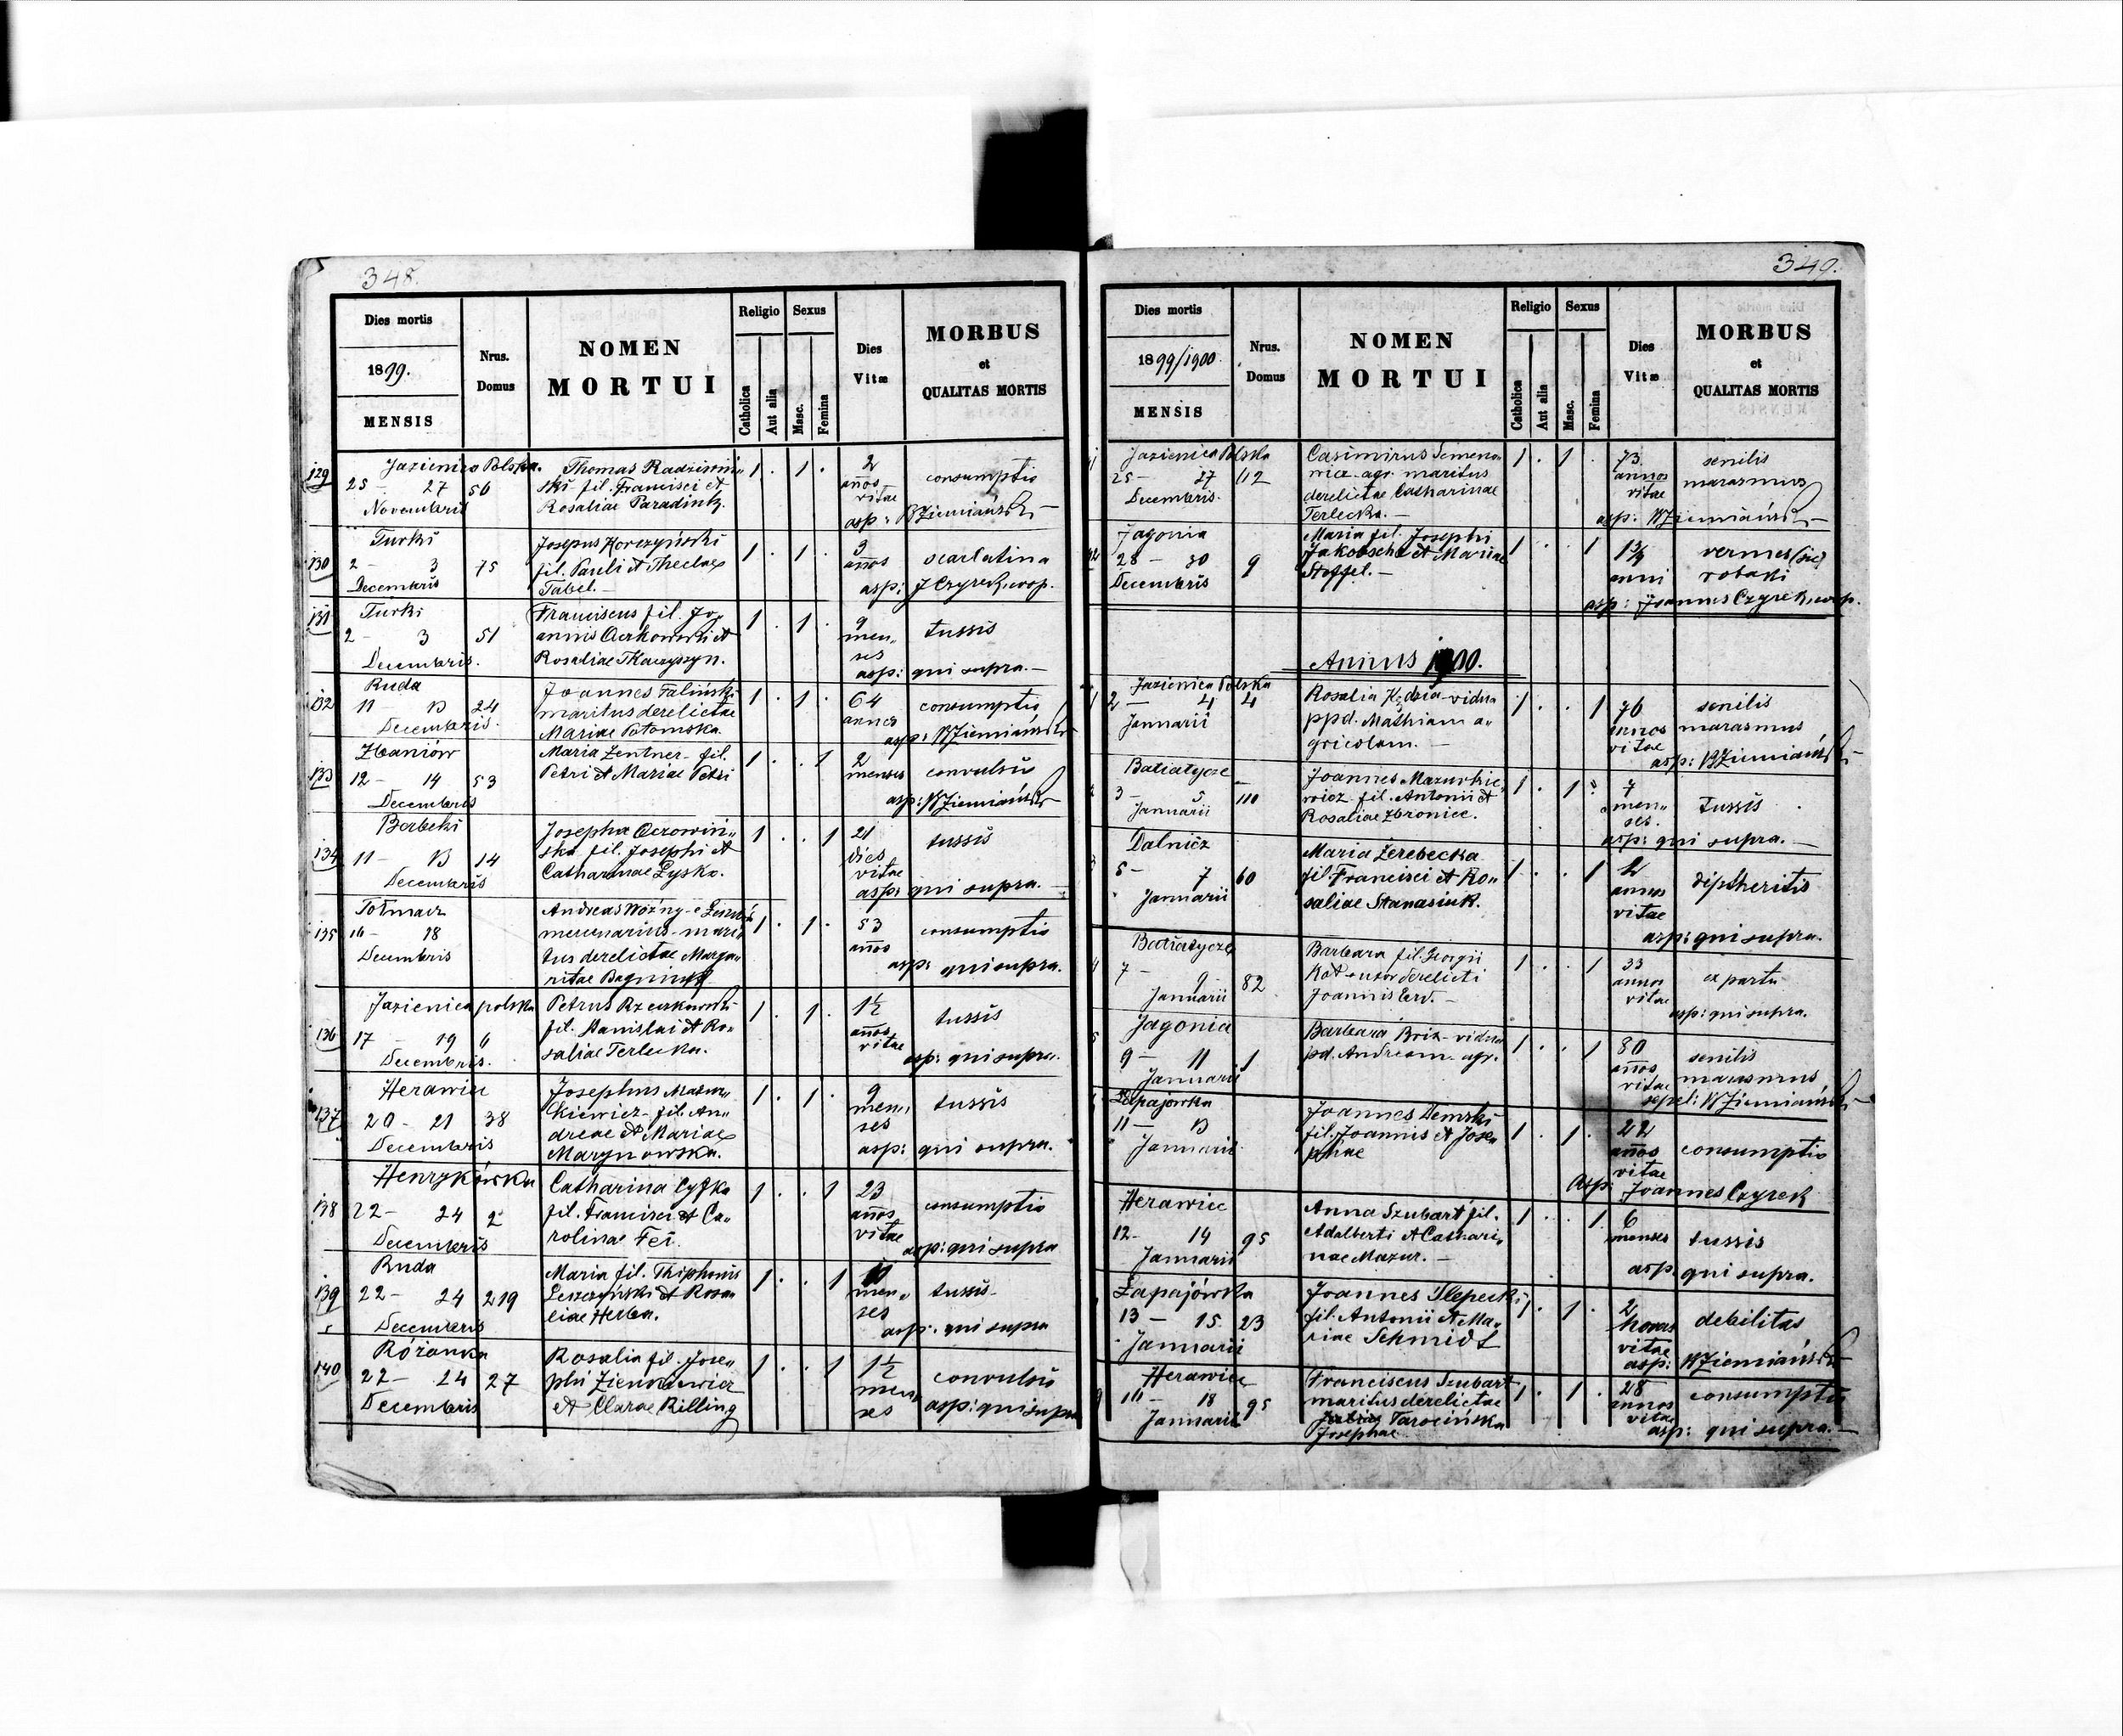 348.
Dies mortis
1899.
MENSIS
Nrus.
Domus
NOMEN
MORTUI
Religio
Catholica
Aut alia
Sexus
Masc.
Femina
Dies
Vitæ
MORBUS
et
QUALITAS MORTIS
129
Jazienica Polska.
25 - 27 56
Novembris
Thomas Radziwiń„
ski fil. Francisci et
Rosaliae Paradiuk.
1 . 1 .
2
años
vitae
consumptio
asp: WZiemiański
130
Turki
2 - 3 75
Decembris
Josepus Korczyński
fil. Pauli et Theclae
Tabel.
1 . 1 .
3
años
scarlatina
asp: J Czyrek, coop.
131
Turki
2 - 3 51
Decembris.
Franciscus fil. Jo„
annis et
Rosaliae Tkaczyszyn.
1 . 1 .
9
men„
ses
tussis
asp: qui supra.
132
Ruda
11 - 13 24
Decembris.
Joannes Faliński
maritus derelictae
Mariae Potomska.
1 . 1 .
64
annos
consumptio
asp: WZiemiański
133
Zbaniów
12 - 14 53
Decembris
Maria Zentner fil.
Petri et Mariae Petri
1 . . 1
2
menses
convulsio
asp: WZiemiański
134
Berbeki
11 - 13 14
Decembris
Josepha
ska fil. Josephi et
Catharinae Łysko.
1 . . 1
21
dies
vitae
tussis
asp: qui supra.
135
Tołmacz
16 - 18
Decembris
Andreas Woźny
mercenarius - mari„
tus derelictae Marga„
ritae
1 . 1 .
53
años
consumptio
asp: qui supra.
136
Jazienica polska
17 - 19 6
Decembris.
Petrus Rzeczkowski
fil. Stanislai et Ro„
saliae Terlecka.
1 . 1 .
1½
años
vitae
tussis
asp: qui supra.
137
Herawiec
20 - 21 38
Decembris
Josephus Mazur„
kiewicz fil. An„
dreae et Mariae
Marynowska.
1 . 1 .
9
men„
ses
tussis
asp: qui supra.
138
Henrykówka
22 - 24 2
Decembris
Catharina Cyfka
fil. Francisci et Ca„
rolinae Fei.
1 . . 1
23
años
vitae
consumptio
asp: qui supra
139
Ruda
22 - 24 219
Decembris
Maria fil. Thiphonis
Leszczyński et Rosa„
liae Herba.
1 . . 1
men„
ses
tussis
asp: qui supra
140
Różanka
22 - 24 27
Decembris
Rosalia fil. Jose„
phi Zienkiewicz
et Clarae Killing
1 . . 1
1½
men„
ses
convulsio
asp: qui supra
349.
Dies mortis
1899/1900.
MENSIS
Nrus.
Domus
NOMEN
MORTUI
Religio
Catholica
Aut alia
Sexus
Masc.
Femina
Dies
Vitæ
MORBUS
et
QUALITAS MORTIS
Jazienica Polska
25 - 27 112
Decembris.
Casimirus Semeno„
wicz agr. maritus
derelictae Catharinae
Terlecka.
1 . 1 .
73
annos
vitae
senilis
marasmus
asp: WZiemiański
Jagonia
28 - 30 9
Decembris
Maria fil. Josephi
Jakobsche et Mariae
Steffel.
1 . . 1
1¾
anni
vermes (sic)
robaki
asp: Joannes Czyrek, coop.
Annus 1900.
1
Jazienica Polska
2 - 4 4
Januarii
Rosalia Kędzia vidua
ppd. Mathiam a„
gricolam.
1 . . 1
76
annos
vitae
senilis
marasmus
asp: WZiemiański
2
Batiatycze
3 - 5 111
Januarii
Joannes Mazurkie„
wicz fil. Antonii et
Rosaliae Zbroniec.
1 . 1 .
7
men„
ses.
tussis
asp: qui supra.
3
Dalnicz
5 - 7 60
Januarii
Maria Żerebecka
fil. Francisci et Ro„
saliae Stanasiuk.
1 . . 1
2
annos
vitae
diptheritis
asp: qui supra.
4
Batiatycze
7 - 9 82
Januarii
Barbara fil. Georgii
Kot uxor derelicti
Joannis Erd.
1 . . 1
33
annos
vitae
ex partu
asp: qui supra.
5
Jagonia
9 - 11 1
Januarii
Barbara Brix vidua
pd. Andream agr.
1 . . 1
80
años
vitae
senilis
marasmus
sepel: WZiemiański
Łapajówka
11 - 13
Januarii
Joannes Demski
fil. Joannis et Jose„
phae
1 . 1 .
22
años
vitae
consumptio
Asp: Joannes Czyrek
Herawiec
12 - 14 95
Januarii
Anna Szubart fil.
Adalberti et Cathari„
nae Mazur.
1 . . 1
6
menses
tussis
asp. qui supra.
Łapajówka
13 - 15. 23
Januarii
Joannes Slepecki
fil. Antonii et Ma„
riae Schmidt
1 . 1 .
2
horas
vitae
debilitas
asp: WZiemiański
9
Herawiec
16 - 18 95
Januarii
Franciscus Szubart
maritus derelictae
Tarocińska
Josephae
1 . 1 .
28
annos
vitae
consumptio
asp: qui supra.